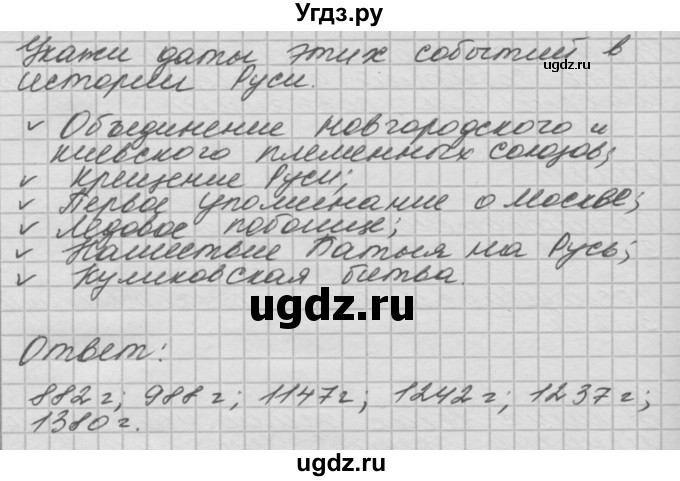 Угдз.ру
Укажи даты этих событий в
ugdz.ru
истории Руси.
✓ Объединение новгородского и
киевского племенных союзов;
✓ Крещение Руси;
✓ Первое упоминание о Москве;
✓ Ледовое побоище;
✓ Нашествие Батыя на Русь;
✓ Куликовская битва.
ugdz.ru
Ответ:
882 г; 988 г; 1147 г; 1242 г; 1237 г;
1380 г.
ugdz.ru